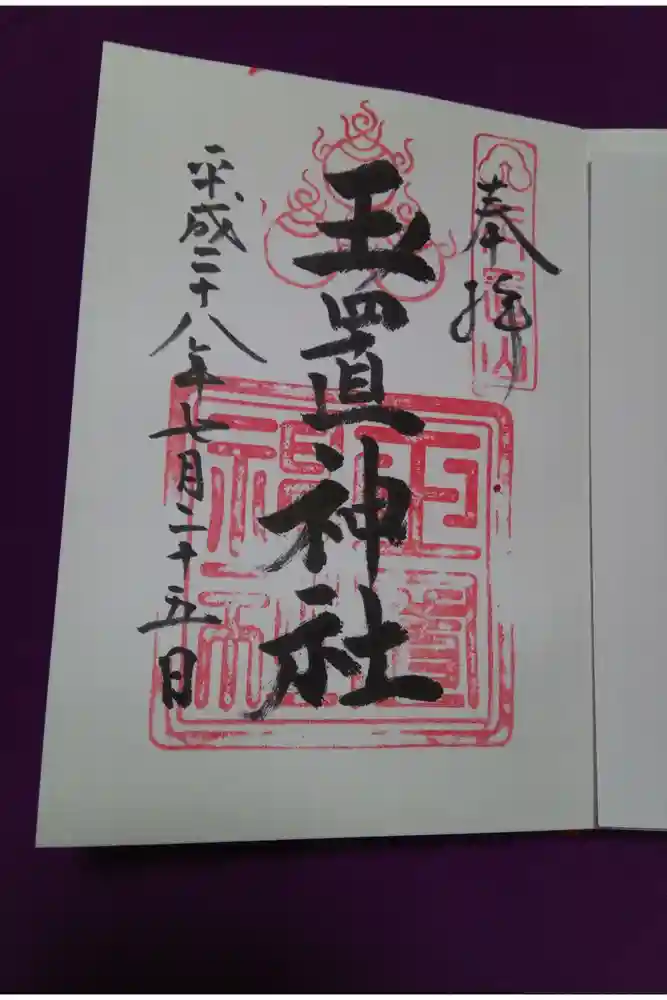 奉拝
玉置神社
平成二十八年七月二十五日